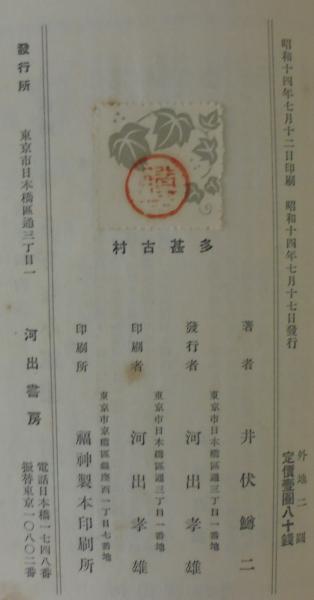 昭和十四年七月十二日印刷　昭和十四年七月十七日發行
外地二圓
定價壹圓八十錢
多甚古村
著者　井伏鱒二
東京市日本橋區通三丁目一番地
發行者　河出孝雄
東京市日本橋區通三丁目一番地
印刷者　河出孝雄
東京市京橋區銀座西一丁目七番地
印刷所　福神製本印刷所
發行所　東京市日本橋區通三丁目一　河出書房
電話日本橋一七四八番
振替東京一〇八〇二番